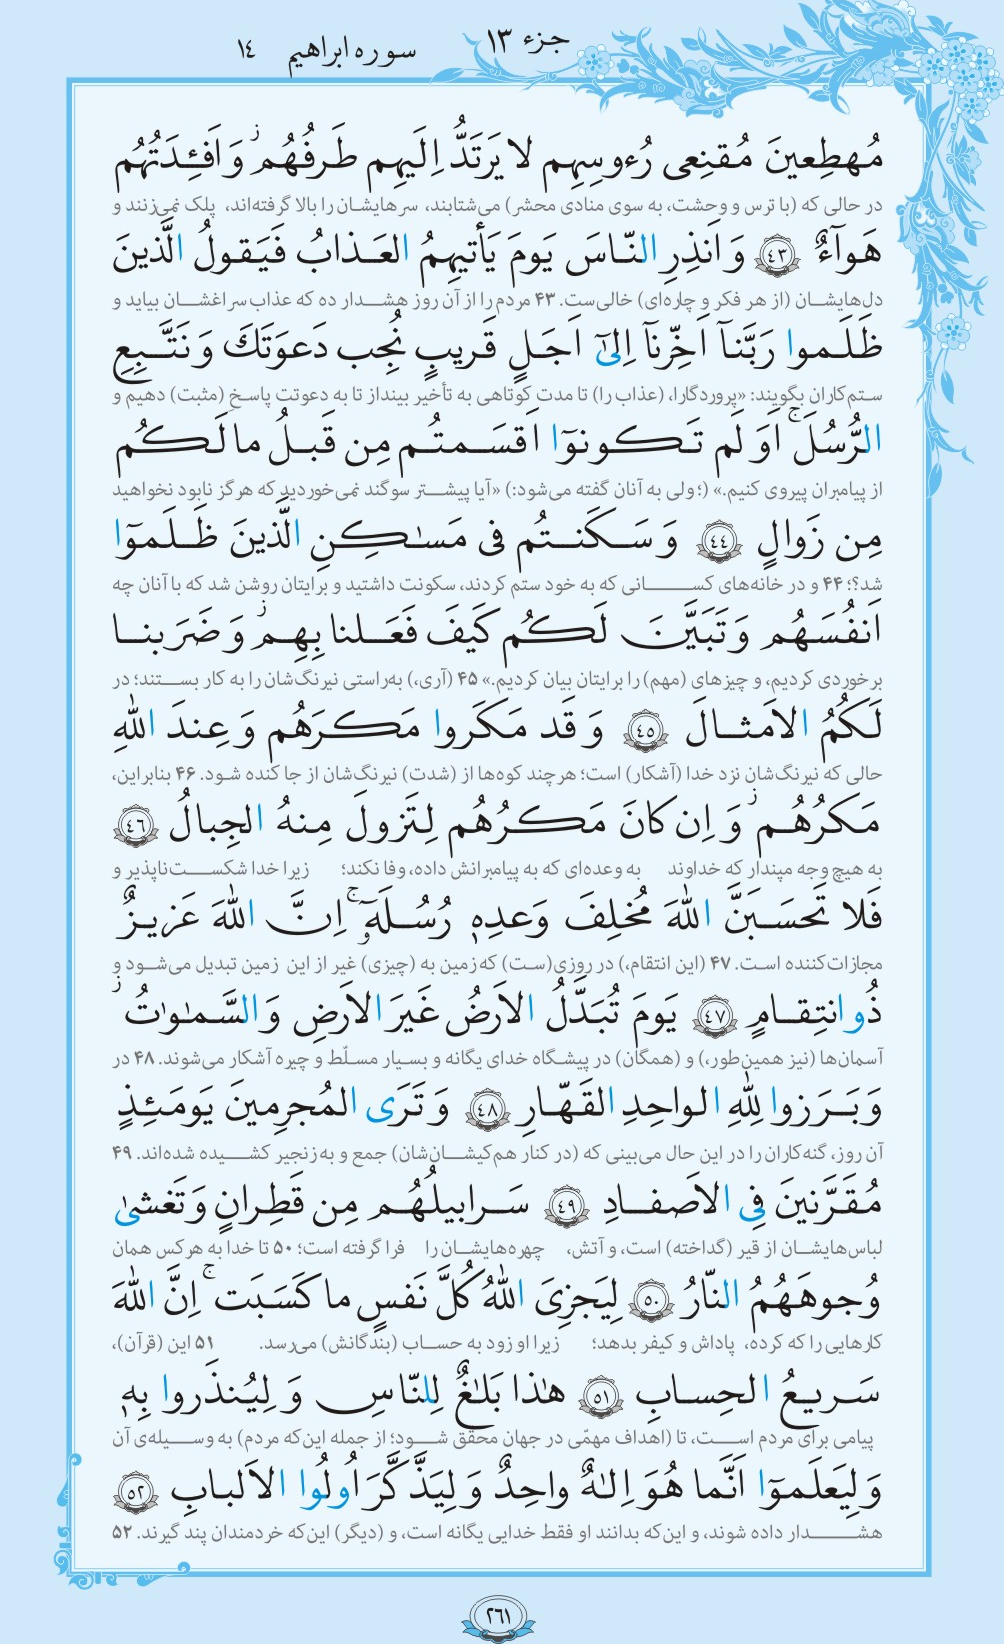 جزء ١٣
سوره ابراهیم ١٤
مُهطِعینَ مُقنِعی رُءوسِهِم لا یَرتَدُّ اِلَیهِم طَرفُهُم ز وَ اَفئِدَتُهُم
در حالی که (با ترس و وحشت، به سوی منادی محشر) می‌شتابند، سرهایشان را بالا گرفته‌اند، پلک نمی‌زنند و
هَوآءٌ ﴿٤٣﴾ وَ اَنذِرِ النّاسَ یَومَ یَأتیهِمُ العَذابُ فَیَقولُ الَّذینَ
دل‌هایشان (از هر فکر و چاره‌ای) خالی‌ست. ۴۳ مردم را از آن روز هشدار ده که عذاب سراغشان بیاید و
ظَلَموا رَبَّنآ اَخِّرنآ اِلیٰٓ اَجَلٍ قَریبٍ نُجِب دَعوَتَكَ وَ نَتَّبِعِ
ستم‌کاران بگویند: «پروردگارا، (عذاب را) تا مدت کوتاهی به تأخیر بینداز تا به دعوتت پاسخ (مثبت) دهیم و
الرُّسُلَ ج اَوَ لَم تَکونوٓا اَقسَمتُم مِن قَبلُ ما لَکُم
از پیامبران پیروی کنیم.» (؛ ولی به آنان گفته می‌شود:) «آیا پیشتر سوگند نمی‌خوردید که هرگز نابود نخواهید
مِن زَوالٍ ﴿٤٤﴾ وَ سَکَنتُم فی مَسٰکِنِ الَّذینَ ظَلَموٓا
شد؟؛ ۴۴ و در خانه‌های کسانی که به خود ستم کردند، سکونت داشتید و برایتان روشن شد که با آنان چه
اَنفُسَهُم وَ تَبَیَّنَ لَکُم کَیفَ فَعَلنا بِهِم ز وَ ضَرَبنا
برخوردی کردیم، و چیزهای (مهم) را برایتان بیان کردیم.» ۴۵ (آری،) به‌راستی نیرنگ‌شان را به کار بستند؛ در
لَکُمُ الاَمثالَ ﴿٤٥﴾ وَ قَد مَکَروا مَکرَهُم وَ عِندَ اللّٰهِ
حالی که نیرنگ‌شان نزد خدا (آشکار) است؛ هرچند کوه‌ها از (شدت) نیرنگ‌شان از جا کنده شود. ۴۶ بنابراین،
مَکرُهُم ز وَ اِن کانَ مَکرُهُم لِتَزولَ مِنهُ الجِبالُ ﴿٤٦﴾
به هیچ وجه مپندار که خداوند به وعده‌ای که به پیامبرانش داده، وفا نکند؛ زیرا خدا شکست‌ناپذیر و
فَلا تَحسَبَنَّ اللّٰهَ مُخلِفَ وَعدِهٖ رُسُلَهٗٓ ج اِنَّ اللّٰهَ عَزیزٌ
مجازات‌کننده است. ۴۷ (این انتقام،) در روزی(ست) که زمین به (چیزی) غیر از این زمین تبدیل می‌شود و
ذُو انتِقامٍ ﴿٤٧﴾ یَومَ تُبَدَّلُ الاَرضُ غَیرَ الاَرضِ وَ السَّمٰوٰتُ ز
آسمان‌ها (نیز همین‌طور،) و (همگان) در پیشگاه خدای یگانه و بسیار مسلّط و چیره آشکار می‌شوند. ۴۸ در
وَ بَرَزوا لِلّٰهِ الواحِدِ القَهّارِ ﴿٤٨﴾ وَ تَرَی المُجرِمینَ یَومَئِذٍ
آن روز، گنه‌کاران را در این حال می‌بینی که (در کنار هم‌کیشان‌شان) جمع و به زنجیر کشیده شده‌اند. ۴۹
مُقَرَّنینَ فِی الاَصفادِ ﴿٤٩﴾ سَرابیلُهُم مِن قَطِرانٍ وَ تَغشیٰ
لباس‌هایشان از قیر (گداخته) است، و آتش، چهره‌هایشان را فرا گرفته است؛ ۵۰ تا خدا به هرکس همان
وُجوهَهُمُ النّارُ ﴿٥٠﴾ لِیَجزِیَ اللّٰهُ کُلَّ نَفسٍ ما کَسَبَت ج اِنَّ اللّٰهَ
کارهایی را که کرده، پاداش و کیفر بدهد؛ زیرا او زود به حساب (بندگانش) می‌رسد. ۵۱ این (قرآن)،
سَریعُ الحِسابِ ﴿٥١﴾ هٰذا بَلاغٌ لِلنّاسِ وَ لِیُنذَروا بِهٖ
پیامی برای مردم است، تا (اهداف مهمّی در جهان محقّق شود؛ از جمله این‌که مردم) به وسیله‌ی آن
وَ لِیَعلَموٓا اَنَّما هُوَ اِلٰهٌ واحِدٌ وَ لِیَذَّکَّرَ اُولُوا الاَلبابِ ﴿٥٢﴾
هشدار داده شوند، و این‌که بدانند او فقط خدایی یگانه است، و (دیگر) این‌که خردمندان پند گیرند. ۵۲
٢٦١